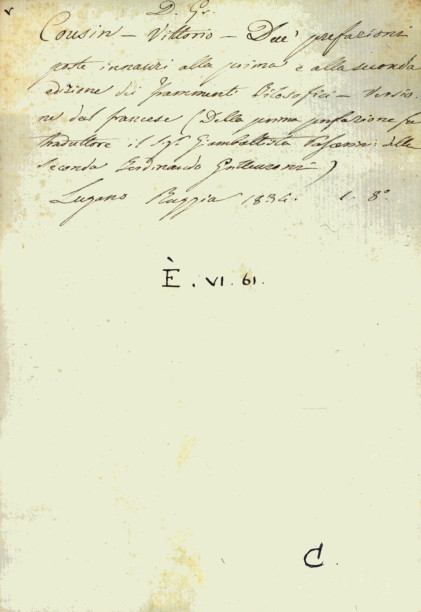 D. Gr.
Cousin - Vittorio - Due prefazioni
poste innanzi alla prima e alla seconda
edizione dei frammenti filosofici - Versio-
ne dal francese (Della prima prefazione fu
traduttore il Sig. Giambattista Passerini della
seconda Ferdinando
Lugano Ruggia 1834. 1. 8°
È. VI. 61.
C.